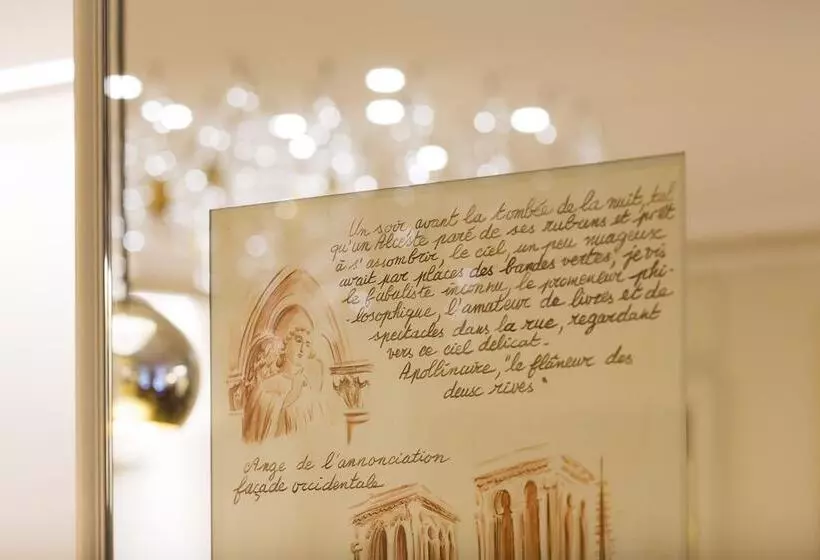 Un soir, avant la tombée de la nuit, tel
qu'un Alceste paré de ses rubans et prêt
à s'assombrir, le ciel, un peu nuageux
avait par places des bandes vertes, je vis
le fabuliste inconnu, le promeneur phi-
-losophique, l'amateur de livres et de
spectacles dans la rue, regardant
vers ce ciel délicat.
Apollinaire, "le flâneur des
deux rives"
Ange de l'annonciation
façade occidentale